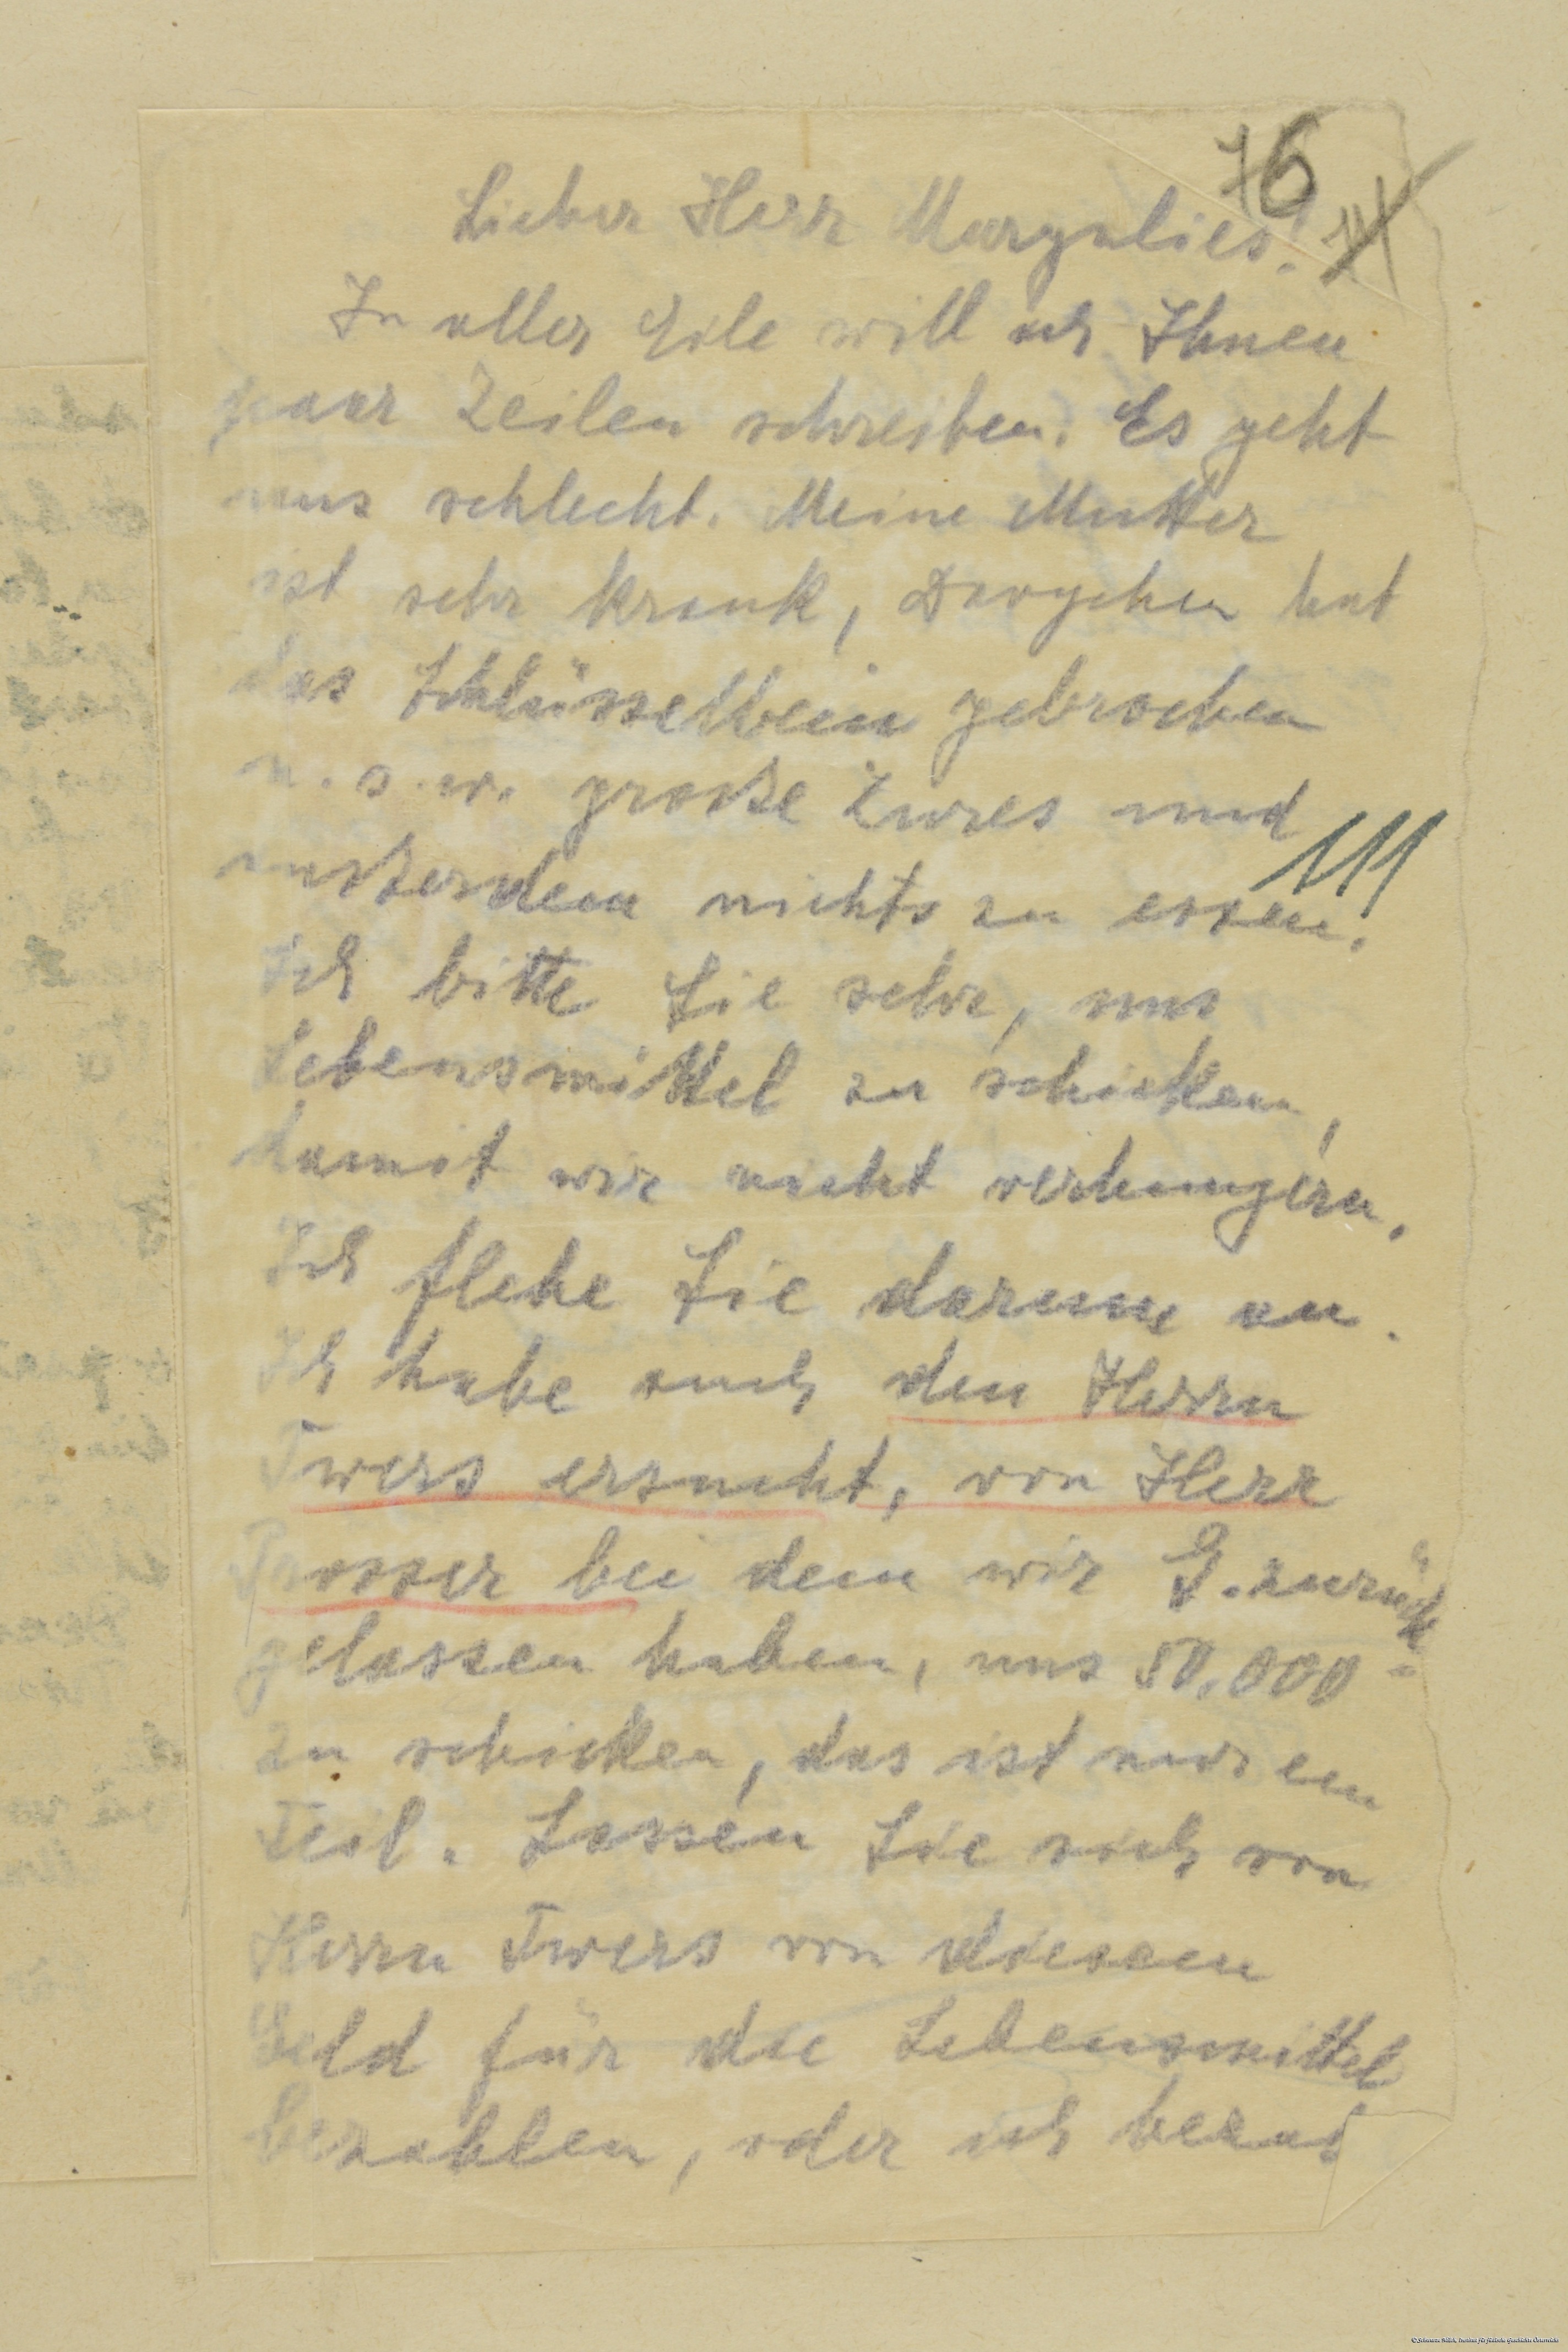 76
Lieber Herr Margulies!
In aller Eile will ich Ihnen
paar Zeilen schreiben. Es geht
uns schlecht. Meine Mutter
ist sehr krank, hat
das Schlüsselbein gebrochen
u.s.w. große Zures und
außerdem nichts zu essen.
111
Ich bitte Sie sehr, uns
Lebensmittel zu schicken,
damit wir nicht verhungern.
Ich flehe Sie darum an.
Ich habe auch den Herrn
Twers ersucht, von Herr
bei dem wir G. zurück
gelassen haben, uns 50.000-
zu schicken, das ist nur ein
Teil. Lassen Sie sich von
Herrn Twers von diesem
Geld für die Lebensmittel
bezahlen, oder ich